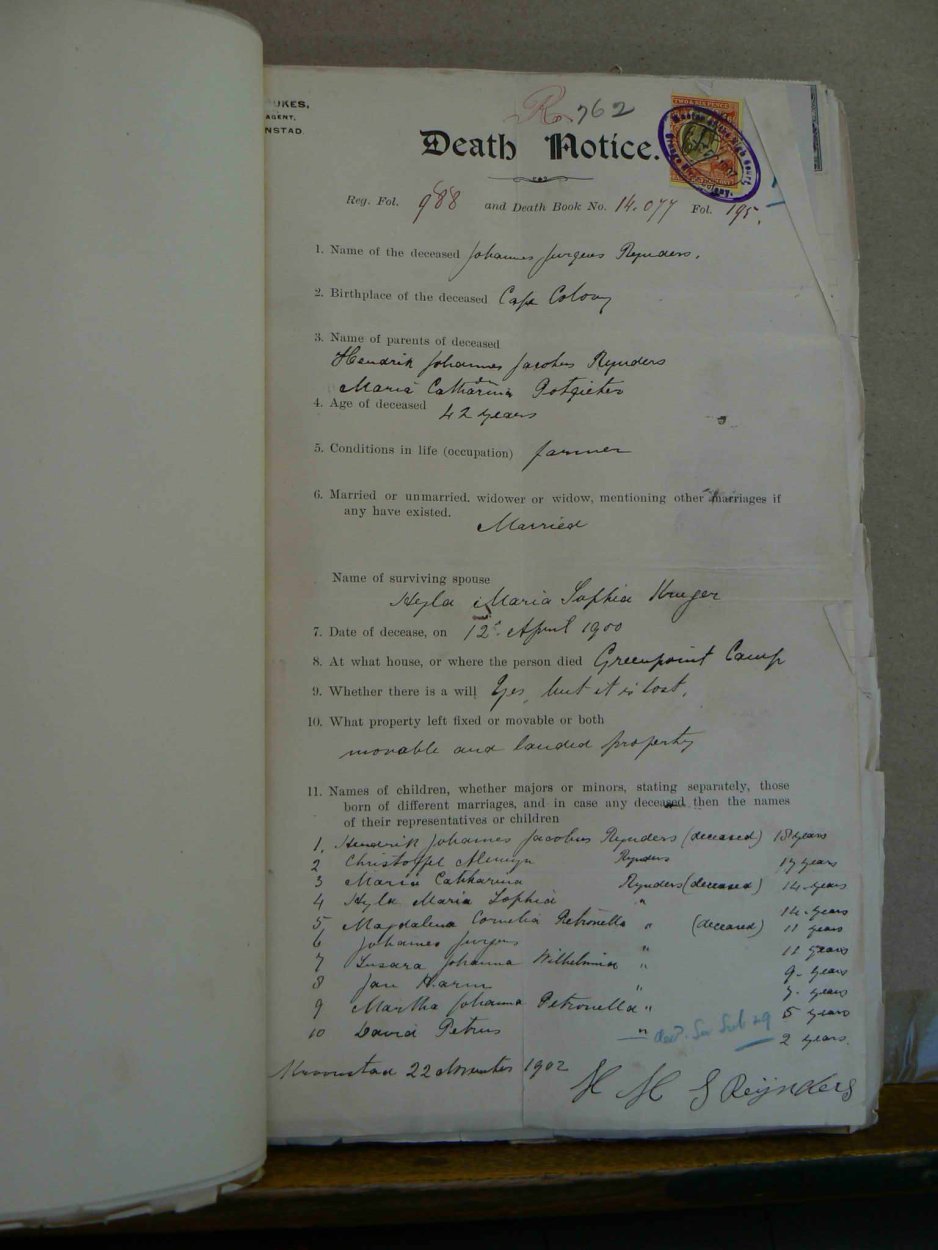 UKES,
AGENT,
NSTAD.
R 762
TWO & SIX PENCE
Master of the High Court,
Orange River Colony.
Death Notice.
Reg. Fol. 988 and Death Book No. 14.077 Fol. 195.
1. Name of the deceased Johannes Jurgens Rynders.
2. Birthplace of the deceased Cape Colony
3. Name of parents of deceased
Hendrik Johannes Jacobus Rynders
Maria Catharina Potgieter
4. Age of deceased 42 years
5. Conditions in life (occupation) farmer
6. Married or unmarried, widower or widow, mentioning other marriages if
any have existed. Married
Name of surviving spouse
Hyla Maria Sophia Kruger
7. Date of decease, on 12 April 1900
8. At what house, or where the person died Greenpoint Camp
9. Whether there is a will Yes, but it is lost.
10. What property left fixed or movable or both
movable and landed property
11. Names of children, whether majors or minors, stating separately, those
born of different marriages, and in case any deceased then the names
of their representatives or children
1, Hendrik Johannes Jacobus Rynders (deceased) 18 years
2 Christoffel Alewyn Rynders 17 years
3 Maria Catharina Rynders (deceased) 14 years
4 Hyla Maria Sophia " 14 years
5, Magdalena Cornelia Petronella " (deceased) 11 years
6 Johannes Jurgens " 11 years
7 Susara Johanna Wilhelmina " 9 years
8 Jan Harm " 7 years
9 Martha Johanna Petronella " 5 years
10 David Petrus " 2 years.
Kroonstad 22 November 1902
H M S Reijnders